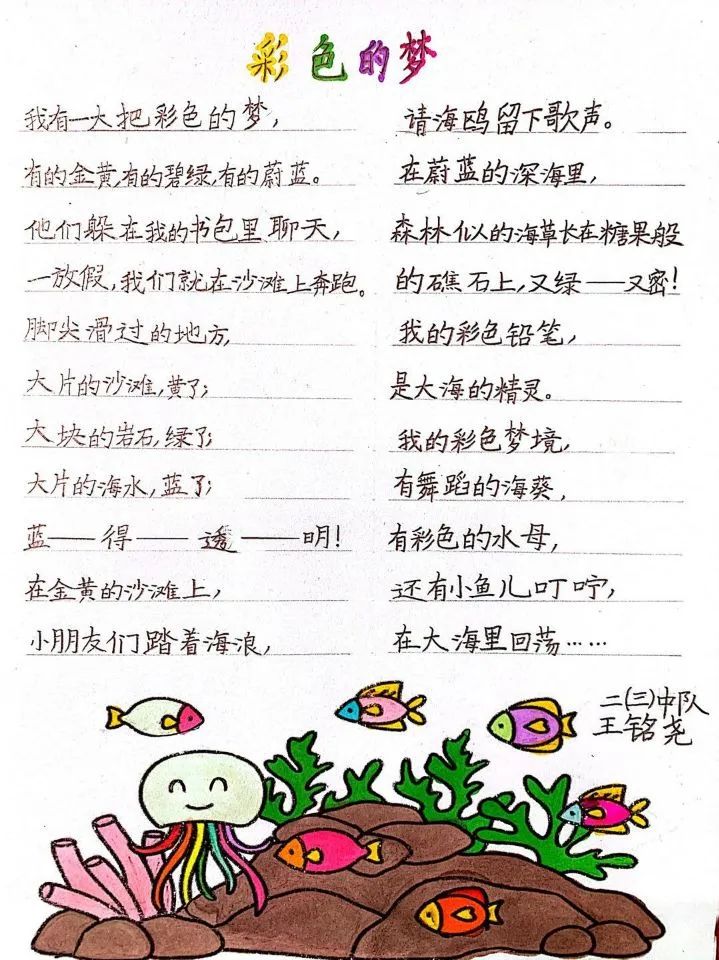 彩色的梦
我有一大把彩色的梦，
有的金黄，有的碧绿，有的蔚蓝。
他们躲在我的书包里聊天，
一放假，我们就在沙滩上奔跑。
脚尖滑过的地方，
大片的沙滩，黄了；
大块的岩石，绿了；
大片的海水，蓝了；
蓝——得——透——明！
在金黄的沙滩上，
小朋友们踏着海浪，
请海鸥留下歌声。
在蔚蓝的深海里，
森林似的海草长在糖果般
的礁石上，又绿——又密！
我的彩色铅笔，
是大海的精灵。
我的彩色梦境，
有舞蹈的海葵，
有彩色的水母，
还有小鱼儿叮咛，
在大海里回荡……
二（三）中队
王铭尧